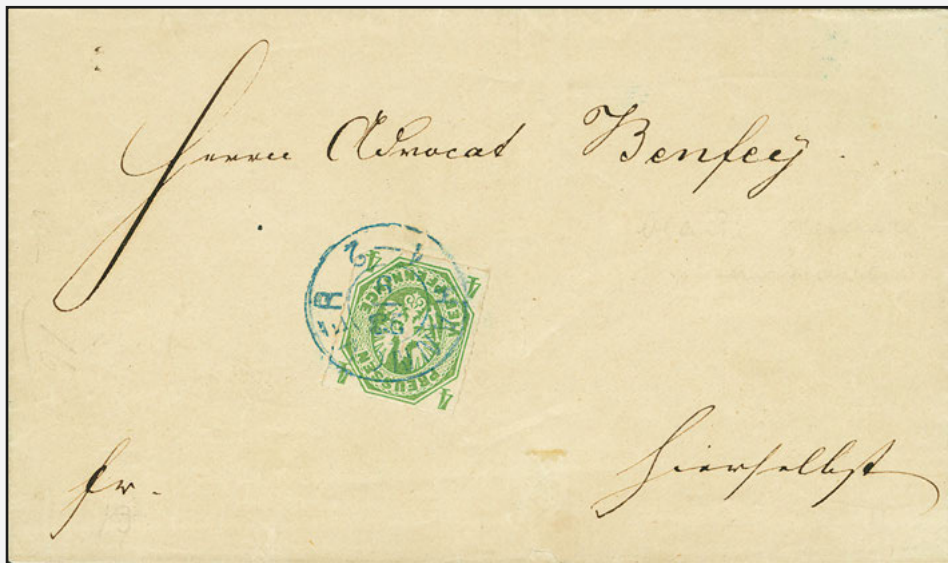 Herrn Advocat Benfey
4 4 4 4
VIER PFENNINGE
PREUSSEN
fr.
hierselbst